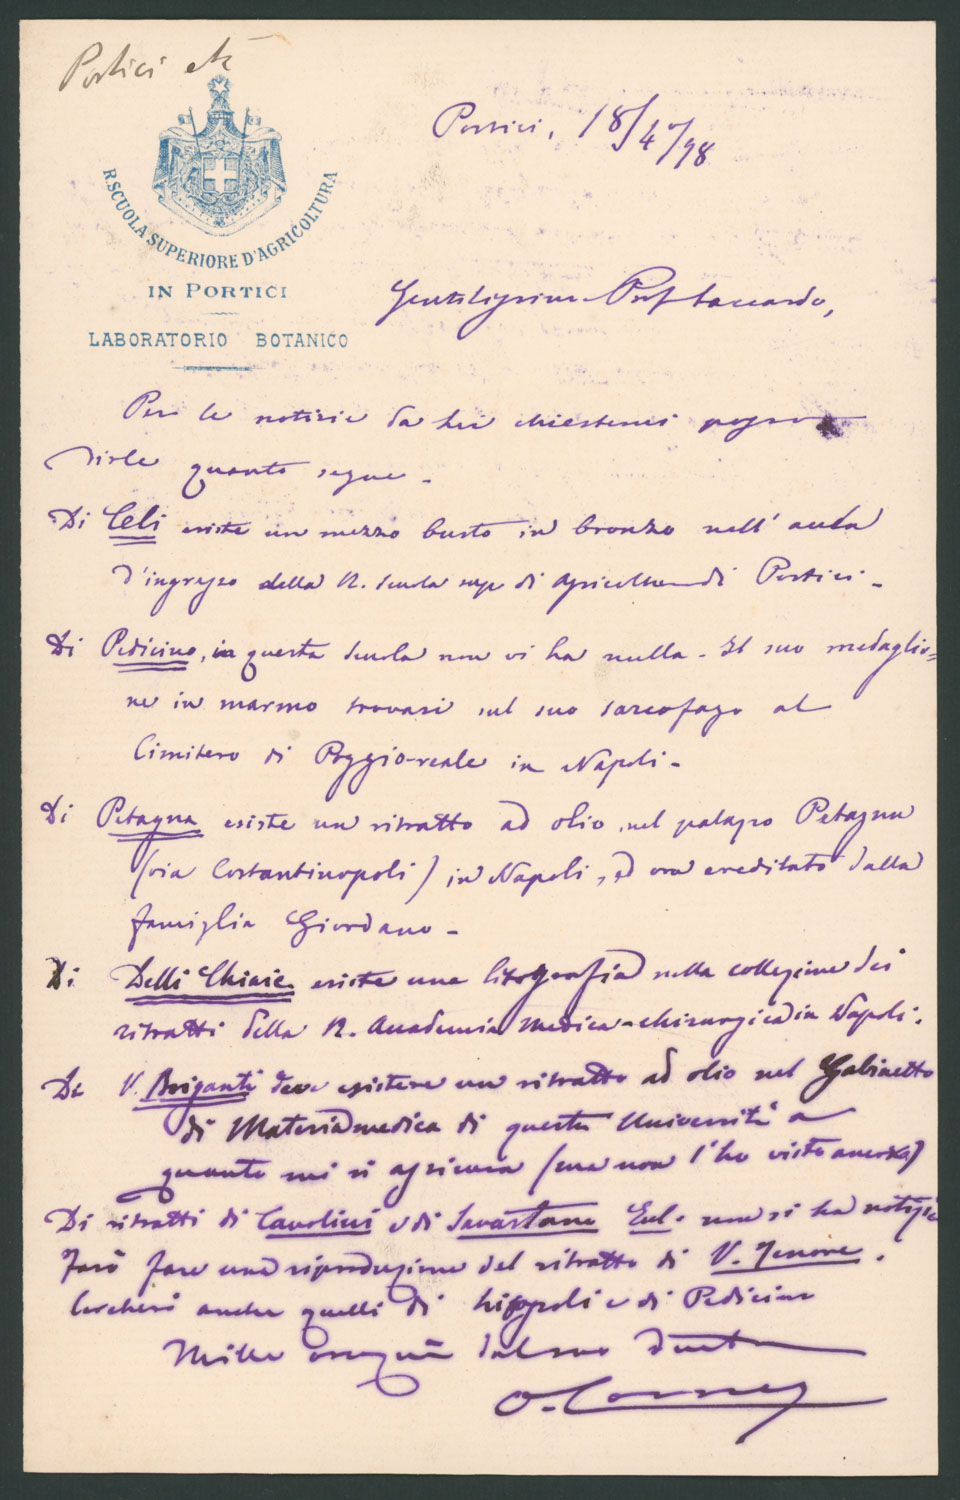 Portici etc
R. SCUOLA SUPERIORE D'AGRICOLTURA
IN PORTICI
LABORATORIO BOTANICO
Portici, 18/4/98
Gentilissimo Prof Saccardo,
Per le notizie da Lei chiestemi posso
dirle quanto segue.
Di Celi esiste un mezzo busto in bronzo nell'aula
d'ingresso della R. Scuola sup di Agricoltura di Portici.
Di Pedicino, in questa Scuola non vi ha nulla. Il suo medaglio=
ne in marmo trovasi sul suo sarcofago al
Cimitero di Poggio-reale in Napoli.
Di Petagna esiste un ritratto ad olio nel palazzo Petagna
(via Costantinopoli) in Napoli, ed ora ereditato dalla
famiglia Giordano.
Di Delli Chiaie esiste una litografia nella collezione dei
ritratti della R. Accademia Medica-chirurgica in Napoli.
Di V. Briganti deve esistere un ritratto ad olio nel Gabinetto
di Materia medica di questa Università a
quanto mi si assicura (ma non l'ho visto ancora)
Di ritratti di Cavolini e di Savastano Eul. non si ha notizie
Farò fare una riproduzione del ritratto di V. Tenore.
Cercherò anche quelli di Lippoli e di Pedicino
Mille ossequi dal suo
O. Comes